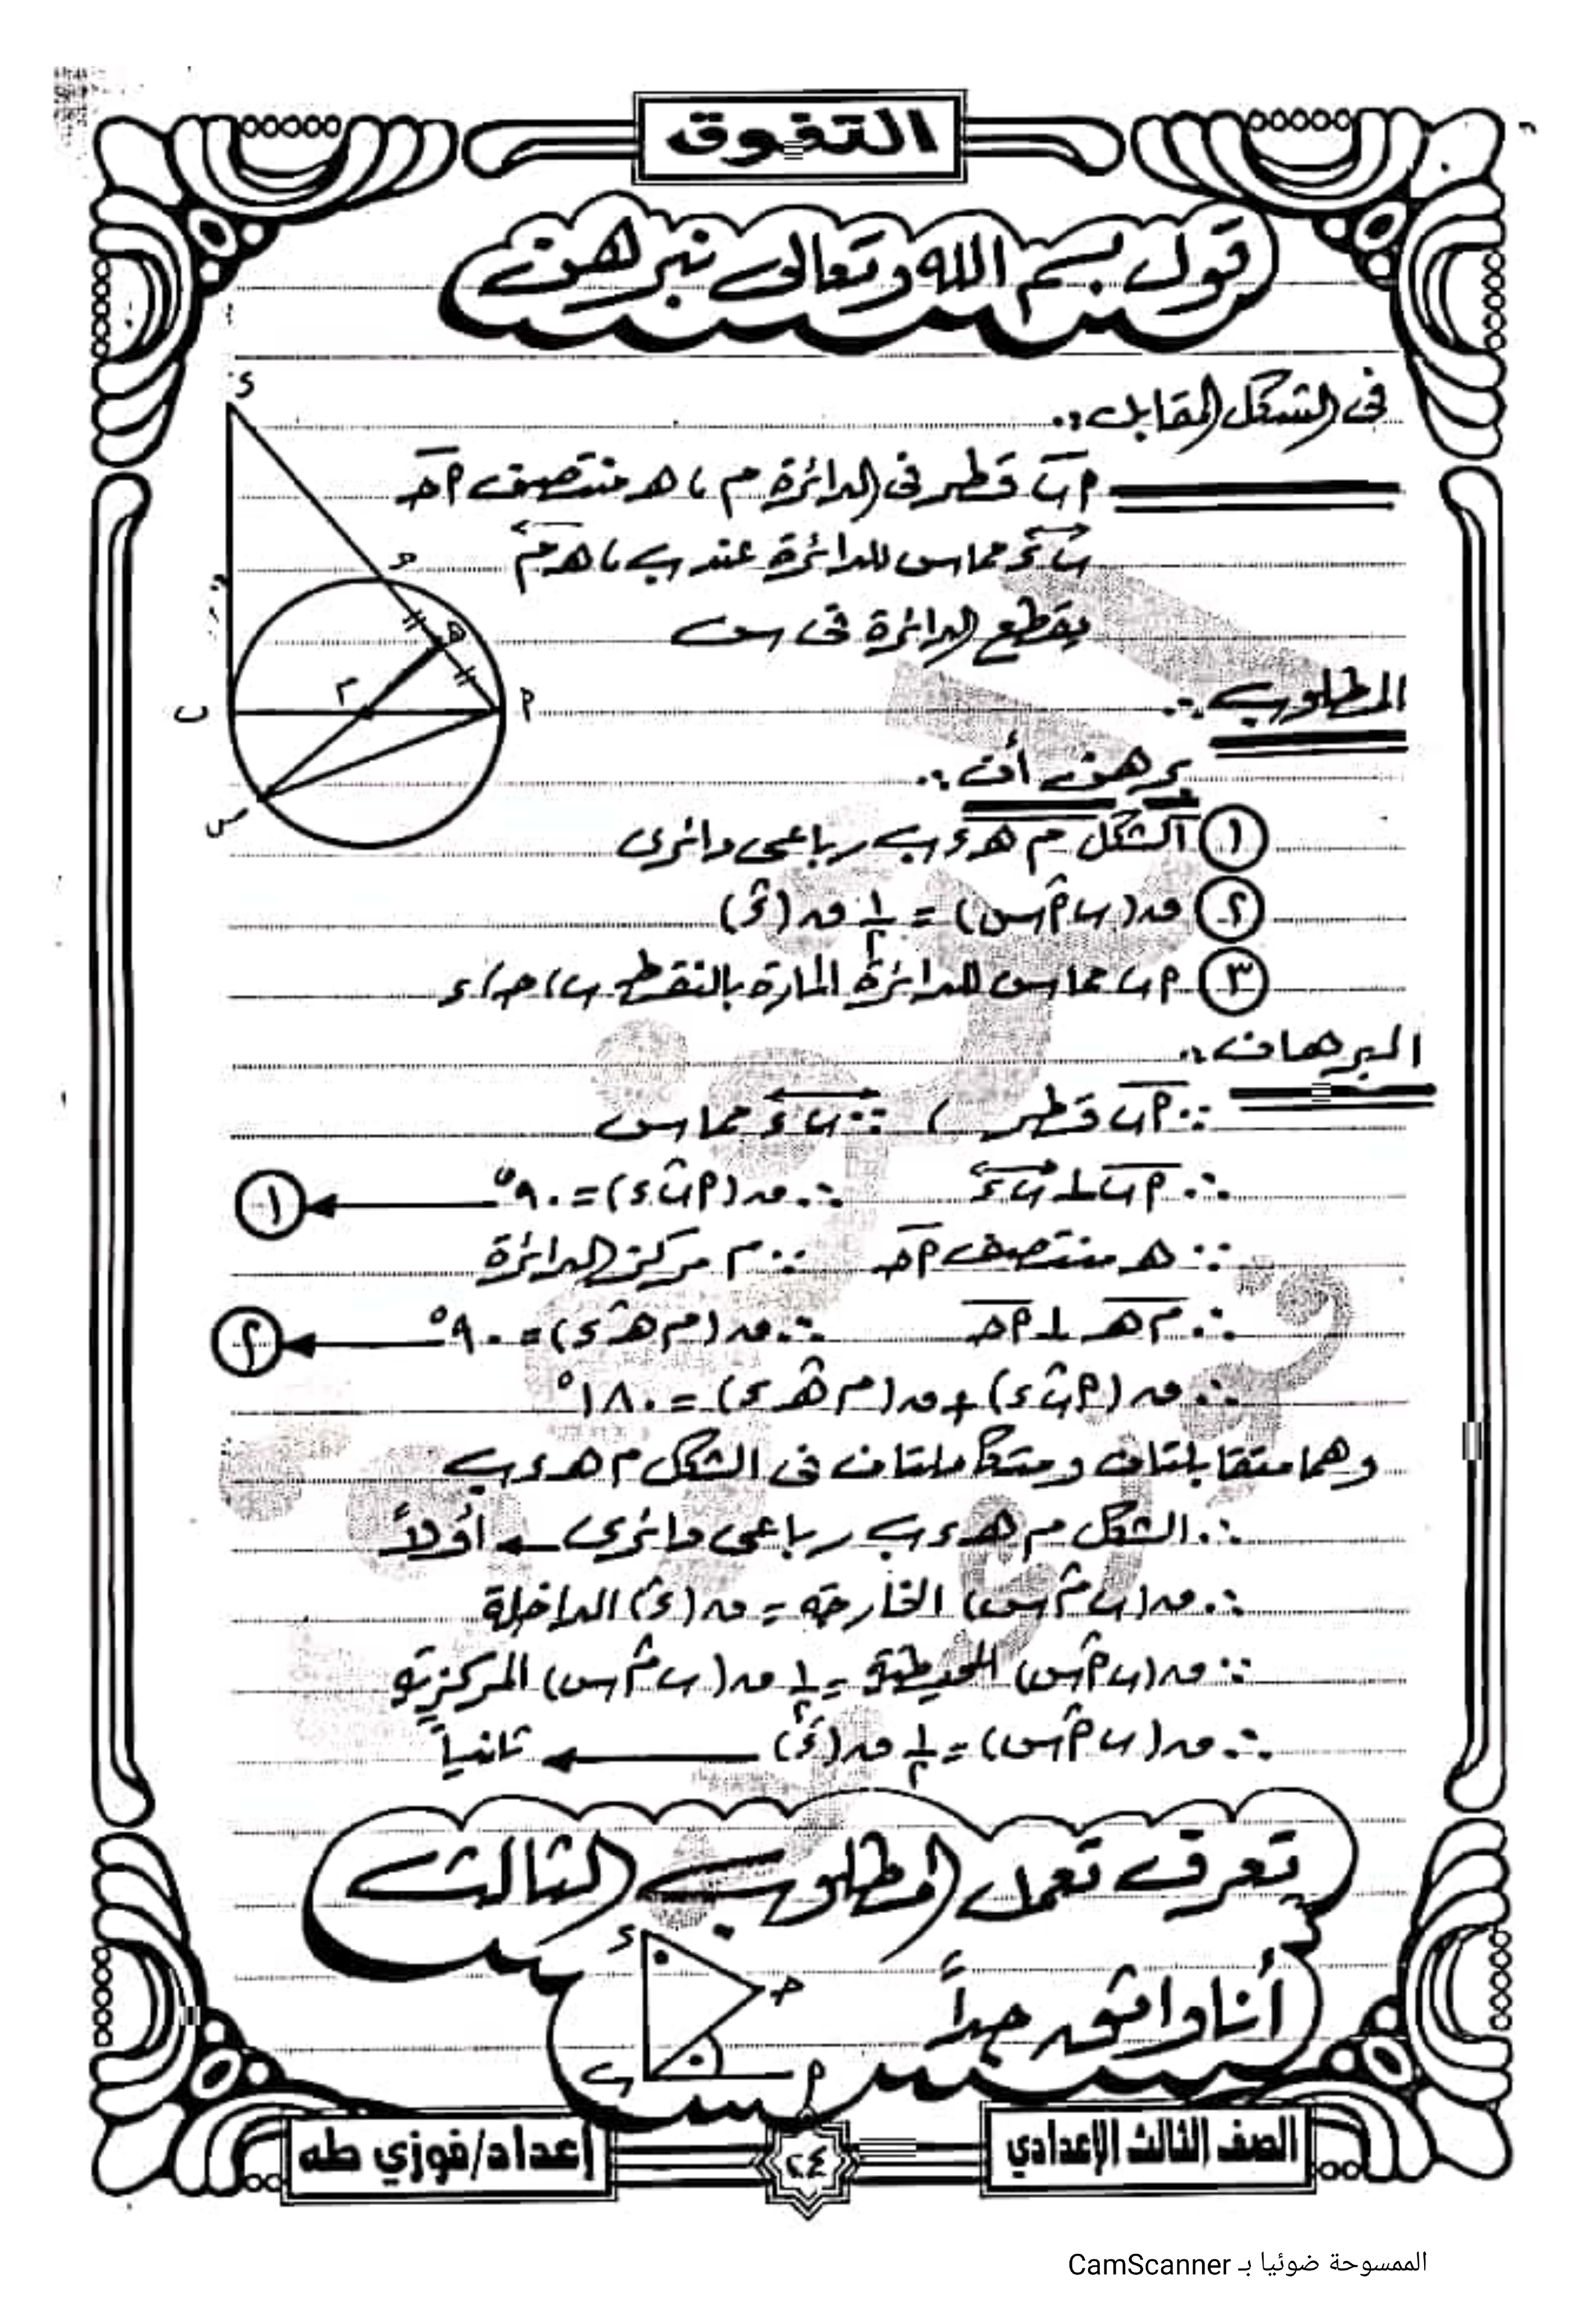 التفوق
قول بسم الله وتعالى نبرهن
فى الشكل المقابل :.
أب قطر فى الدائرة م ، هـ منتصف أجـ
ب ء مماس للدائرة عند ب ، هـ م
يقطع الدائرة فى س
ء
جـ
هـ
م
أ
ب
س
المطلوب :.
برهن أن :.
١ الشكل م هـ ء ب رباعى دائرى
٢ ق(ب أ س) = ١/٢ ق(ء)
٣ أب مماس للدائرة المارة بالنقط ب ، جـ ، ء
البرهان :.
∵ أب قطر ، ∵ ب ء مماس
∴ أب ⊥ ب ء ∴ ق(أ ب ء) = ٩٠° ← ١
∵ هـ منتصف أجـ ∵ م مركز الدائرة
∴ م هـ ⊥ أجـ ∴ ق(م هـ ء) = ٩٠° ← ٢
∴ ق(أ ب ء) + ق(م هـ ء) = ١٨٠°
وهما متقابلتان ومتكاملتان فى الشكل م هـ ء ب
∴ الشكل م هـ ء ب رباعى دائرى ← أولاً
∴ ق(ب م س) الخارجة = ق(ء) الداخلة
∵ ق(ب أ س) المحيطية = ١/٢ ق(ب م س) المركزية
∴ ق(ب أ س) = ١/٢ ق(ء) ← ثانياً
تعرف تعمل المطلوب الثالث
أنا واثق جداً
ء
جـ
ب
أ
الصف الثالث الإعدادي
٢٤
إعداد/فوزي طه
الممسوحة ضوئيا بـ CamScanner